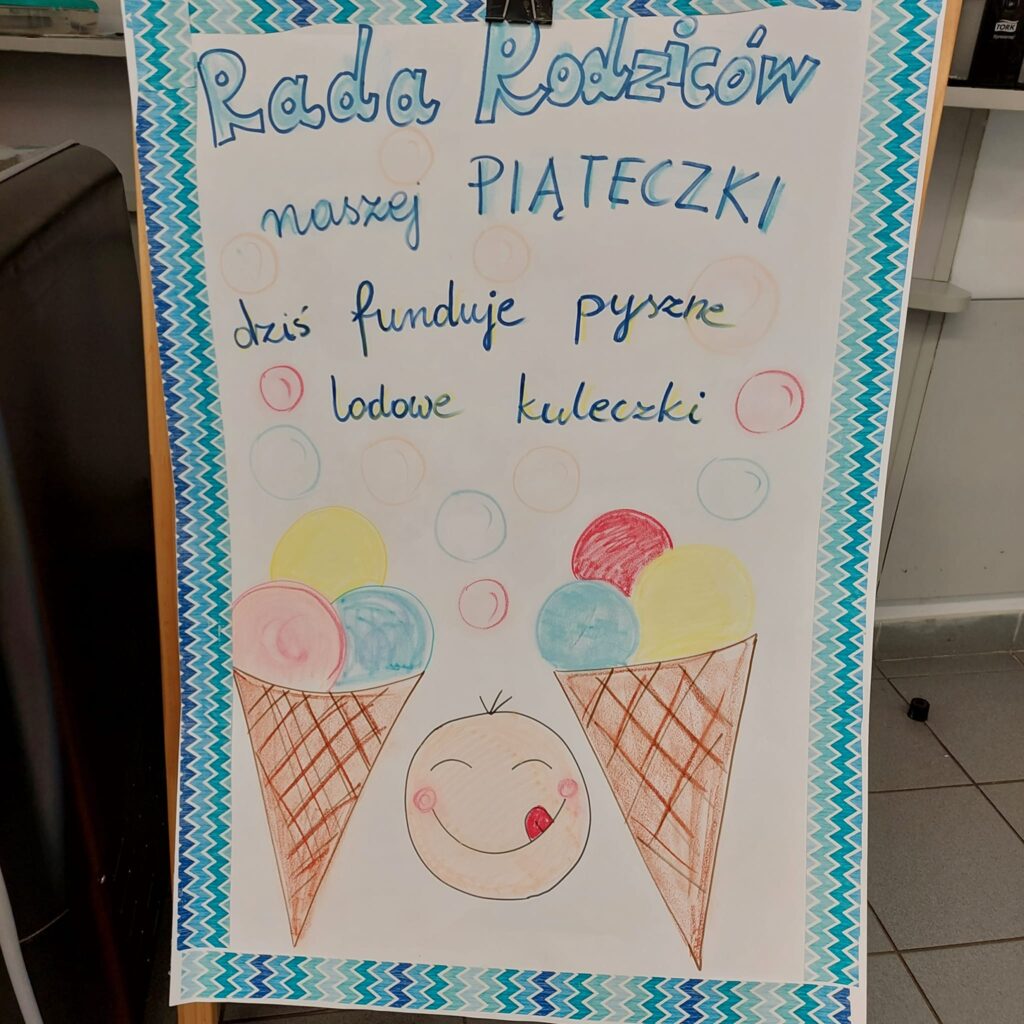 Rada Rodziców
naszej PIĄTECZKI
dziś funduje pyszne
lodowe kuleczki
TORK